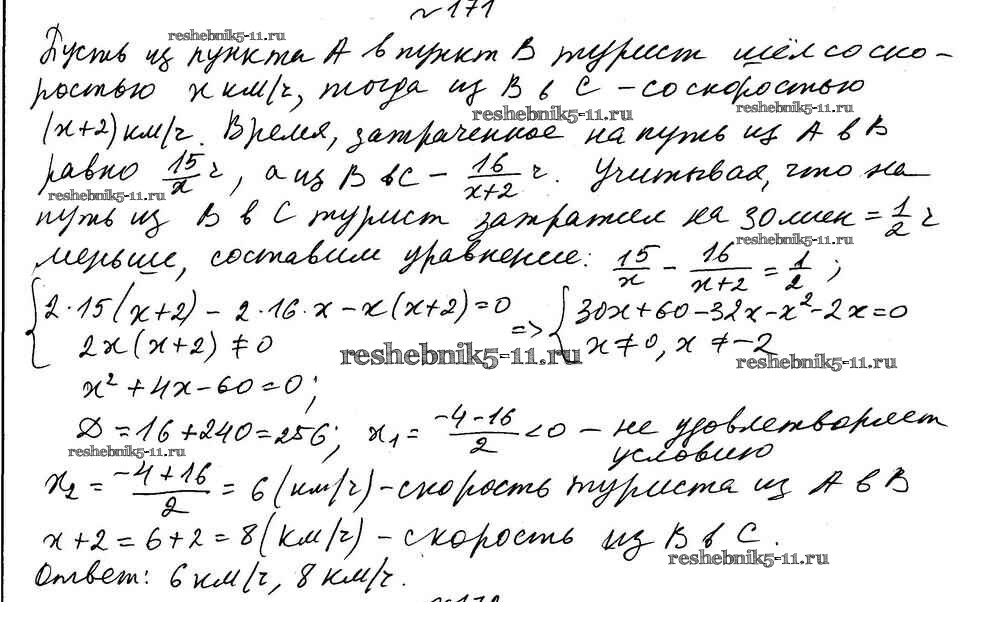 №171
Пусть из пункта А в пункт В турист шёл со ско-
ростью x км/ч, тогда из В в С – со скоростью
(x+2) км/ч. Время, затраченное на путь из А в В
равно 15/x ч, а из В в С – 16/(x+2) ч. Учитывая, что на
путь из В в С турист затратил на 30 мин = 1/2 ч
меньше, составим уравнение: 15/x - 16/(x+2) = 1/2;
{2·15(x+2) - 2·16·x - x(x+2)=0 => {30x+60-32x-x²-2x=0
2x(x+2)≠0 x≠0, x≠-2
x²+4x-60=0;
D=16+240=256; x₁=(-4-16)/2<0 – не удовлетворяет
условию
x₂=(-4+16)/2=6 (км/ч) – скорость туриста из А в В
x+2=6+2=8 (км/ч) – скорость из В в С.
Ответ: 6 км/ч, 8 км/ч.
reshebnik5-11.ru
reshebnik5-11.ru
reshebnik5-11.ru
reshebnik5-11.ru
reshebnik5-11.ru
reshebnik5-11.ru
reshebnik5-11.ru
reshebnik5-11.ru
reshebnik5-11.ru